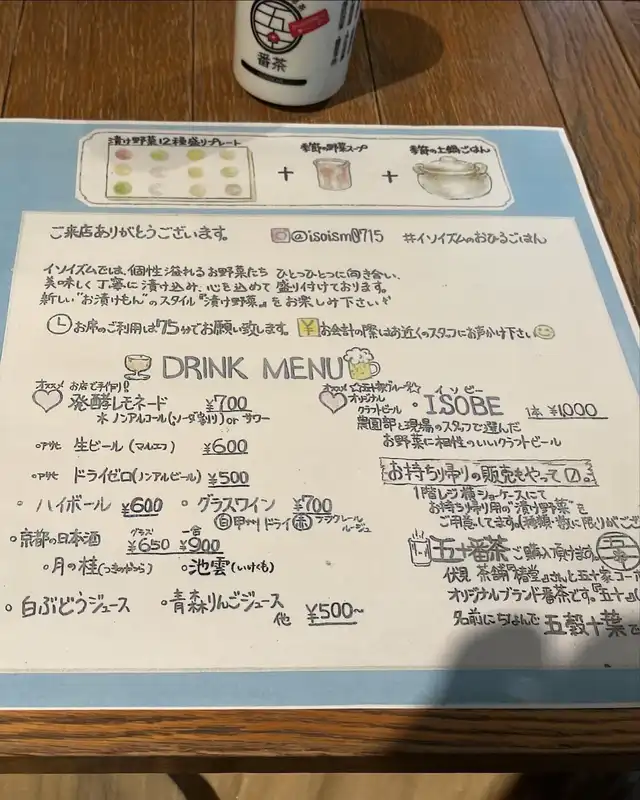 番茶
漬け野菜12種盛りプレート
+
季節の野菜スープ
+
季節の土鍋ごはん
ご来店ありがとうございます。
@isoism0715
#イソイズムのおひるごはん
イソイズムでは、個性溢れるお野菜たち ひとつひとつに向き合い、
美味しく丁寧に漬け込み、心を込めて盛り付けております。
新しい"お漬けもん"のスタイル『漬け野菜』をお楽しみ下さい!
お席のご利用は75分でお願い致します。
¥お会計の際はお近くのスタッフにお声かけ下さい
DRINK MENU
オススメ お店で手作り!
発酵レモネード ¥700
※ノンアルコール(ソーダ割り)or サワー
・アサヒ 生ビール(マルエフ) ¥600
・アサヒ ドライゼロ(ノンアルビール) ¥500
・ハイボール ¥600
・グラスワイン ¥700
白 甲州ドライ 赤
ルージュ
・京都の日本酒 グラス ¥650 一合 ¥900
・月の桂(つきのかつら) ・池雲(いけくも)
・白ぶどうジュース ・青森りんごジュース
他 ¥500~
オススメ
オリジナル
クラフトビール
・ISOBE イソビー 1本 ¥1,000
農園部と現場のスタッフで選んだ
お野菜に相性のいいクラフトビール
お持ち帰りの販売をやって
1階レジ横ショーケースにて
お持ち帰り用の"漬け野菜"を
ご用意してます。
五十番茶 ご購入頂けます。
伏見 茶舗『椿堂』さんと五十家コー
オリジナルブランド番茶です。『五十』(
名前にちなんで 五穀十葉 で